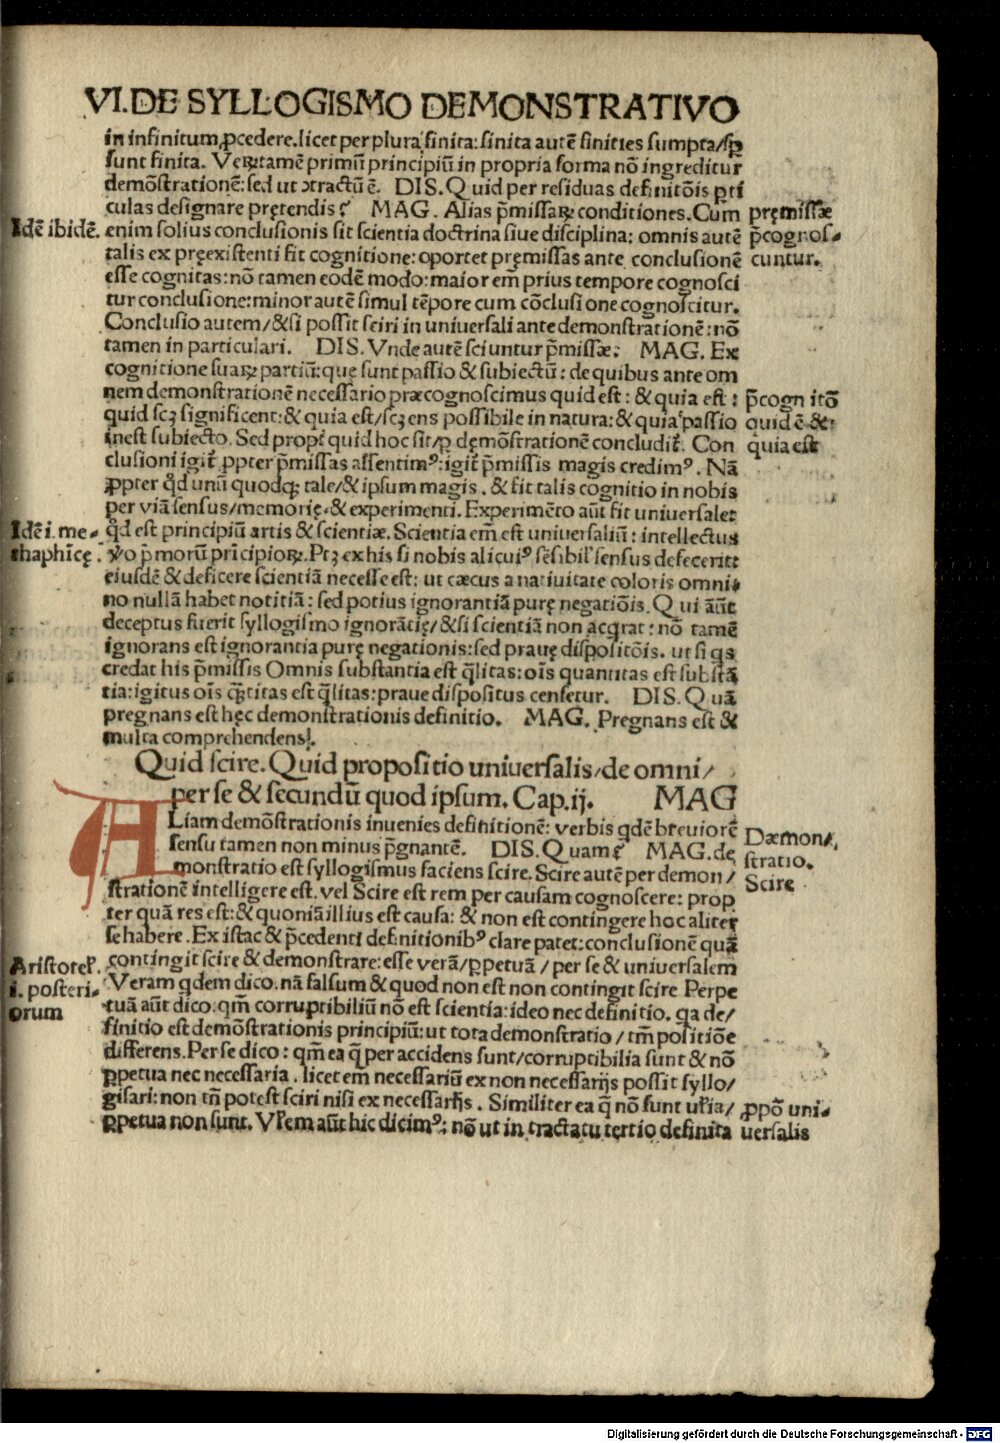 VI. DE SYLLOGISMO DEMONSTRATIVO
in infinitum ꝓcedere. licet per plura finita: finita autē finities sumpta/sp
sunt finita. Veꝝtamē primū principiū in propria forma nō ingreditur
demōstrationē: sed ut ɔtractū ē. DIS. Quid per residuas definitōis ꝑti
culas designare pretendis? MAG. Alias p̄missaꝝ conditiones. Cum
enim solius conclusionis sit scientia doctrina siue disciplina: omnis autē
talis ex pręexistenti fit cognitione: oportet pręmissas ante conclusionē
esse cognitas: nō tamen eodē modo: maior em̄ prius tempore cognosci
tur conclusione: minor autē simul tēpore cum cōclusione cognoscitur.
Conclusio autem/&si possit sciri in uniuersali ante demonstrationē: nō
tamen in particulari. DIS. Vnde autē sciuntur p̄missæ: MAG. Ex
cognitione suaꝝ partiū: quę sunt passio & subiectū: de quibus ante om
nem demonstrationē necessario præcognoscimus quid est: & quia est:
quid scꝫ significent: & quia est/scꝫ ens possibile in natura: & quia passio
inest subiecto. Sed propt̄ quid hoc sit/ꝑ demōstrationē concludit̄. Con
clusioni igit̄ ꝓpter p̄missas assentimꝰ: igit̄ p̄missis magis credimꝰ. Nā
ꝓpter qd̄ unū quodqꝫ tale/& ipsum magis. & fit talis cognitio in nobis
per viā sensus/memorię & experimenti. Experimēto aūt fit uniuersale:
qd̄ est principiū artis & scientiæ. Scientia em̄ est uniuersaliū: intellectus
v̄o p̄morū prīcipioꝝ. Ptꝫ ex his si nobis alicuiꝰ sēsibil' sensus defecerit:
eiusdē & deficere scientiā necesse est: ut cæcus a natiuitate coloris omni
no nullā habet notitiā: sed potius ignorantiā purę negatiōis. Qui aūt
deceptus fuerit syllogismo ignorātię/&si scientiā non acqrat: nō tamē
ignorans est ignorantia purę negationis: sed prauę dispositōis. ut si qs
credat his p̄missis Omnis substantia est q̄litas: oīs quantitas est substā
tia: igitus oīs q̄titas est q̄litas: praue dispositus censetur. DIS. Quā
pregnans est hęc demonstrationis definitio. MAG. Pregnans est &
multa comprehendens.
Quid scire. Quid propositio uniuersalis/de omni/
per se & secundū quod ipsum. Cap. ij. MAG
ALiam demōstrationis inuenies definitionē: verbis qdē breuiorē
sensu tamen non minus p̄gnantē. DIS. Quam? MAG. de
monstratio est syllogismus faciens scire. Scire autē per demon/
strationē intelligere est. vel Scire est rem per causam cognoscere: prop
ter quā res est: & quoniā illius est causa: & non est contingere hoc aliter
se habere. Ex istac & p̄cedenti definitionibꝰ clare patet: conclusionē quā
contingit scire & demonstrare: esse verā/ꝑpetuā/per se & uniuersalem
Veram qdem dico. nā falsum & quod non est non contingit scire Perpe
tuā aūt dico. qm̄ corruptibiliū nō est scientia: ideo nec definitio. qa de/
finitio est demōstrationis principiū: ut tota demonstratio/tm̄ positiōe
differens. Per se dico: qm̄ ea q̄ per accidens sunt/corruptibilia sunt & nō
ꝑpetua nec necessaria. licet em̄ necessariū ex non necessarijs possit syllo/
gisari: non tn̄ potest sciri nisi ex necessarijs. Similiter ea q̄ nō sunt ul'ia/
ꝑpetua non sunt. Vl'em aūt hic dicimꝰ: nō ut in tractatu tertio definita
Idē ibidē.
Idē i. me-
thaphicę.
Aristotel'.
i. posteri-
orum
pręmissæ
p̄cognos-
cuntur.
p̄cognitō
quid ē &
quia est
Dæmon/
stratio.
Scire
ꝓpō uni-
uersalis
Digitalisierung gefördert durch die Deutsche Forschungsgemeinschaft - DFG